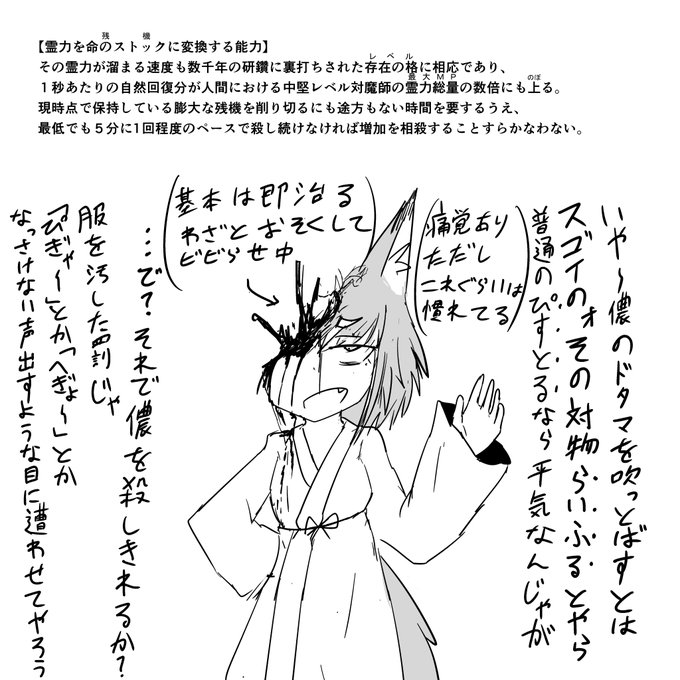 【霊力を命のストックに変換する能力】
その霊力が溜まる速度も数千年の研鑽に裏打ちされた存在の格に相応であり、
１秒あたりの自然回復分が人間における中堅レベル対魔師の霊力総量の数倍にも上る。
現時点で保持している膨大な残機を削り切るにも途方もない時間を要するうえ、
最低でも５分に1回程度のペースで殺し続けなければ増加を相殺することすらかなわない。
残機
レベル
最大ＭＰ
のぼ
いや〜儂のドタマを吹っとばすとは
スゴイのォその対物らいふるとやら
普通のぴすとるなら平気なんじゃが
痛覚あり
ただし
これぐらいは
慣れてる
基本は即治る
わざとおそくして
ビビらせ中
…で？それで儂を殺しきれるか？
服を汚した罰じゃ
「ぴぎゃ〜」とか「へぎょ〜」とか
なっさけない声出すような目に遭わせてやろう